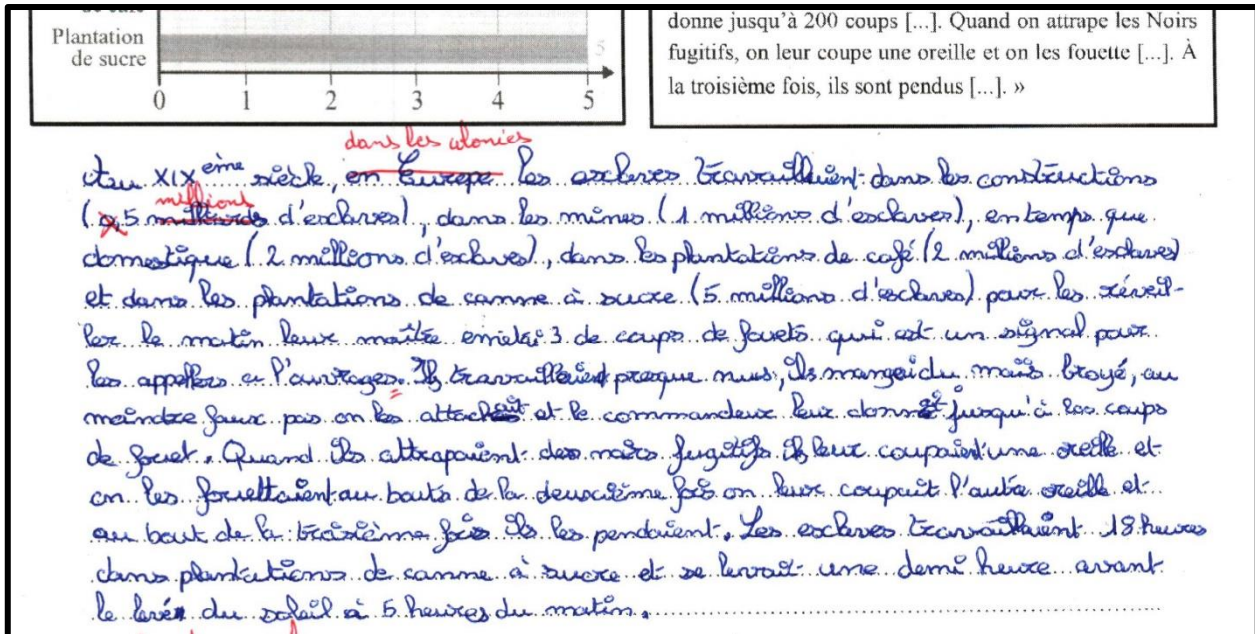 de café
Plantation
de sucre
5
0 1 2 3 4 5
donne jusqu'à 200 coups [...]. Quand on attrape les Noirs
fugitifs, on leur coupe une oreille et on les fouette [...]. À
la troisième fois, ils sont pendus [...]. »
dans les colonies
Au XIX ème siècle, en Europe les esclaves travaillaient dans les constructions
millions
(0,5 milliards d'esclaves), dans les mines (1 millions d'esclaves), en temps que
domestique (2 millions d'esclaves), dans les plantations de café (2 millions d'esclaves)
et dans les plantations de canne à sucre (5 millions d'esclaves) pour les réveil-
ler le matin leur maître emetai 3 de coups de fouets qui est un signal pour
les appellers a l'ouvrages. Ils travaillaient presque nus, ils mangeai du maïs broyé, au
moindre faux pas on les attachait et le commandeur leur donnait jusqu'à 200 coups
de fouet. Quand ils attrapaient des noirs fugitifs ils leur coupaient une oreille et
on les fouettaient au bouts de la deuxième fois on leur coupait l'autre oreille et
au bout de la troisième fois ils les pendaient. Les esclaves travaillaient 18 heures
dans plantations de canne à sucre et se levait une demi heure avant
le levé du soleil à 5 heures du matin.